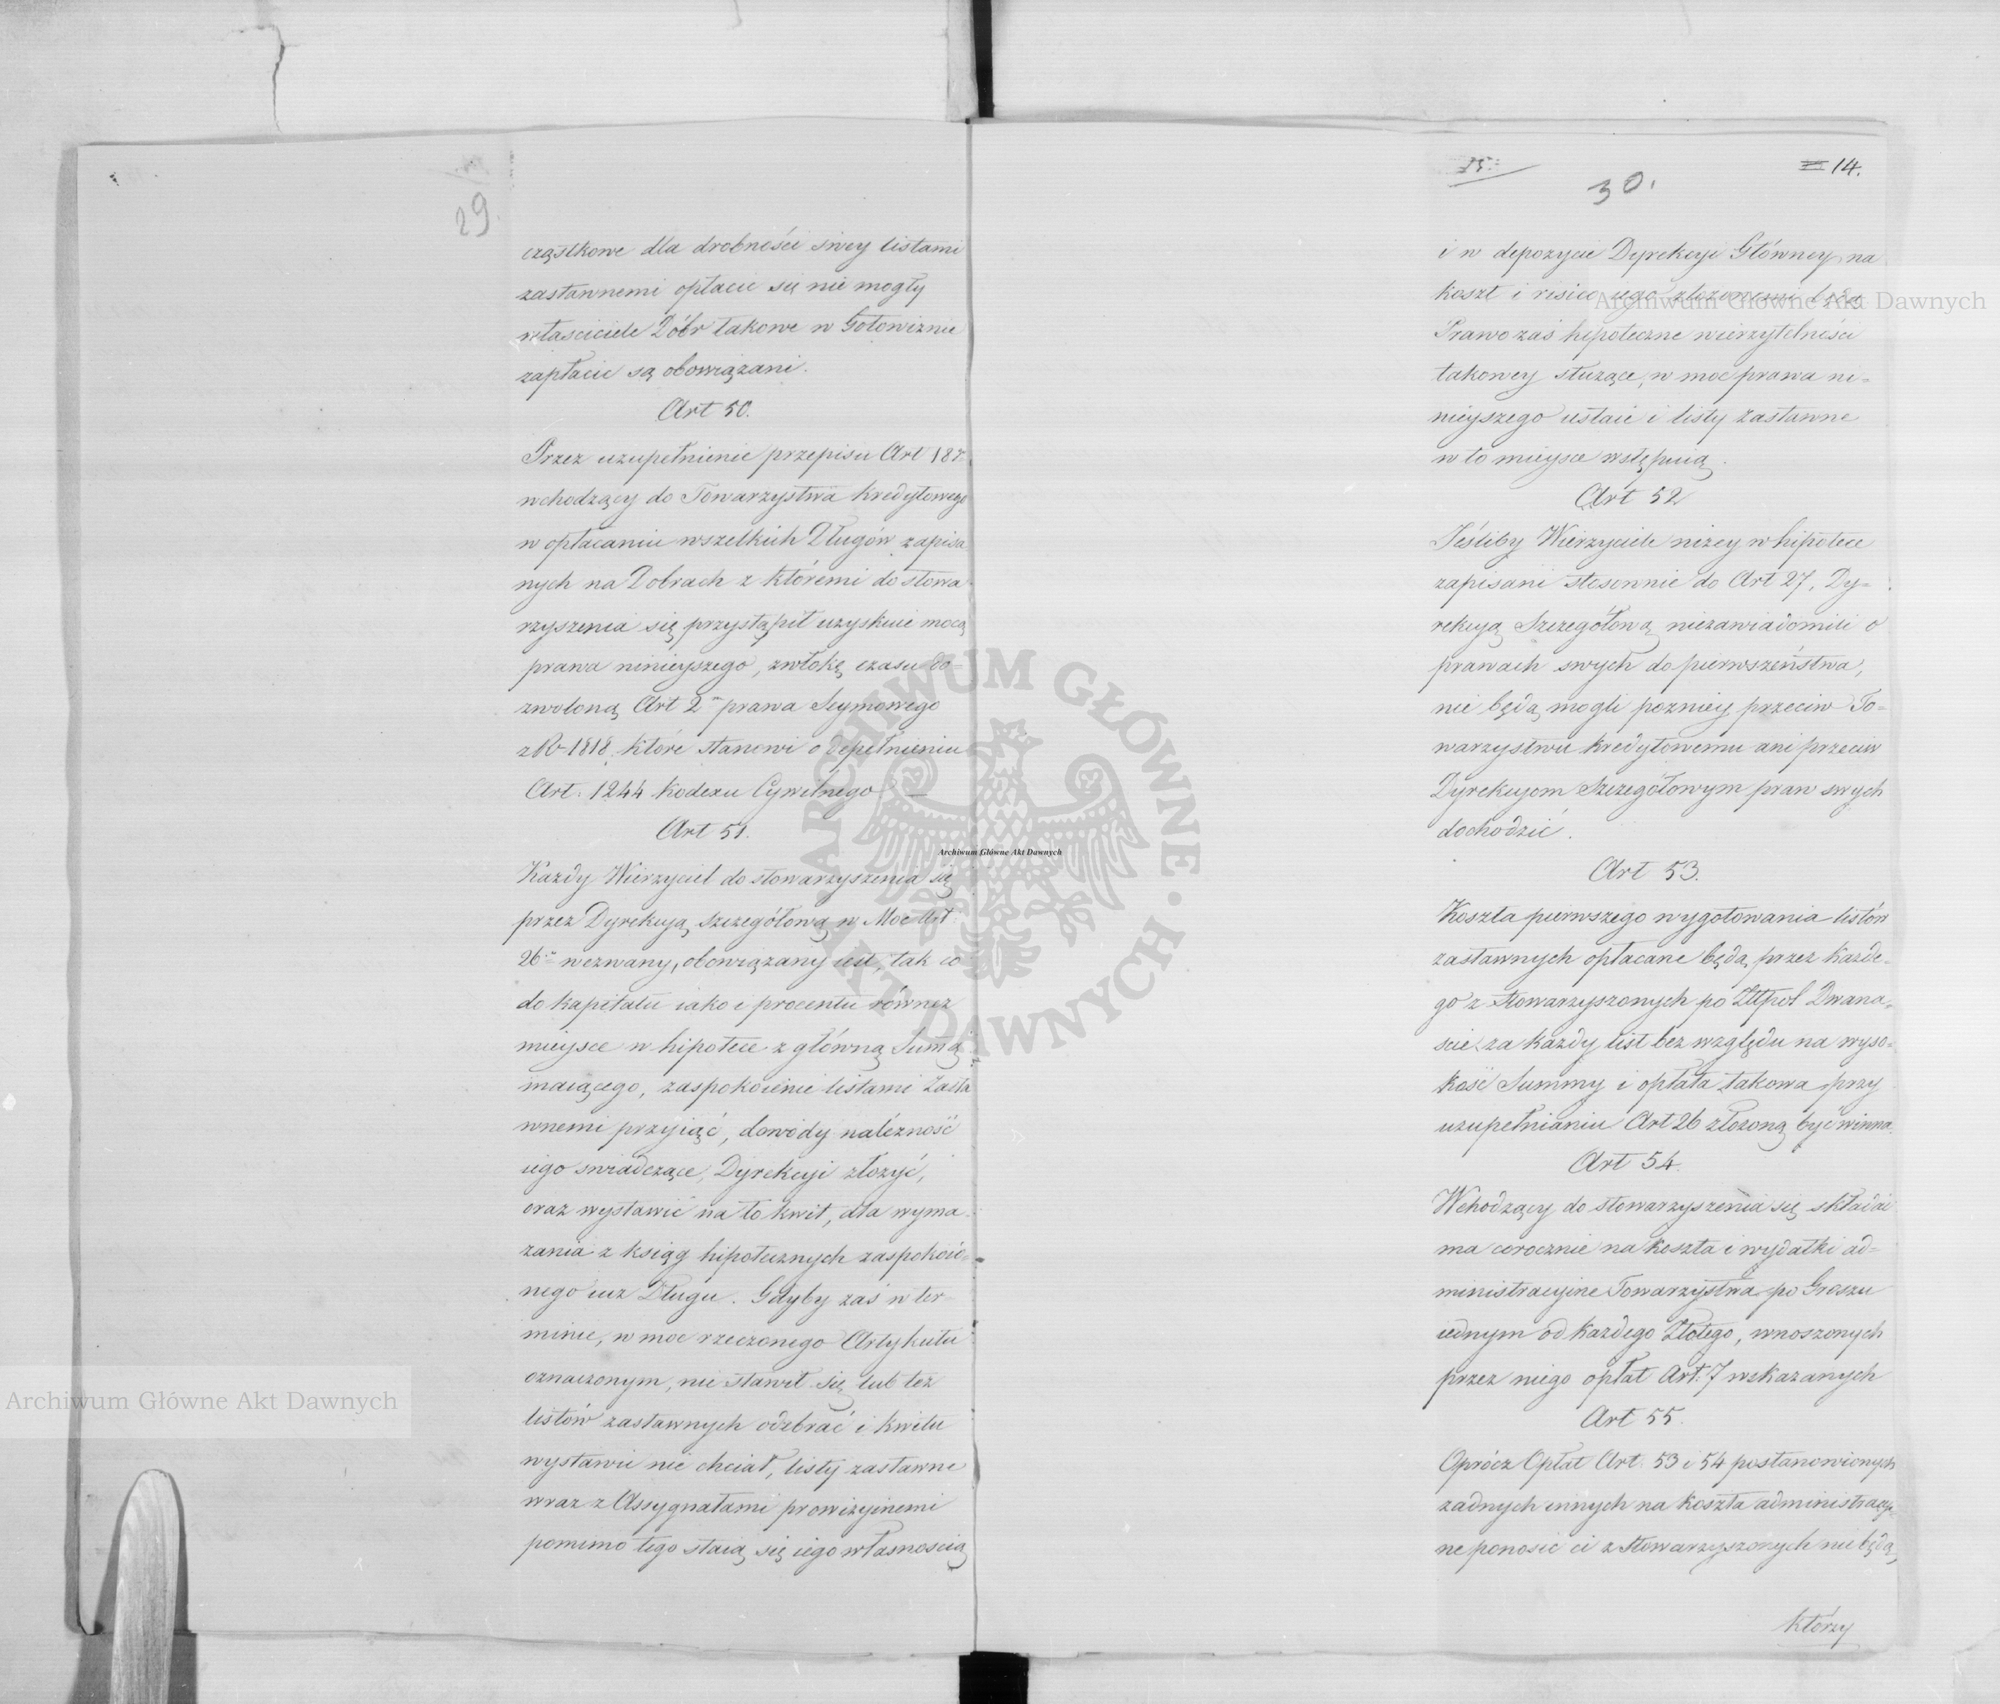 29.
cząstkowe dla drobności swey listami
zastawnemi opłacić się nie mogły
właściciele Dóbr takowe w Gotowiznie
zapłacić są obowiązani.
Art 50.
Przez uzupełnienie przepisu Art 187.
wchodzący do Towarzystwa kredytowego
w opłacaniu wszelkich Długów zapisa
nych na Dobrach z któremi do stowa
rzyszenia się przystąpił uzyskuie mocą
prawa ninieyszego, zwłokę czasu do-
zwoloną Art 2 prawa Seymowego
z R 1818, które stanowi o dopełnieniu
Art. 1244 Kodexu Cywilnego —
Art 51.
Każdy Wierzyciel do stowarzyszenia się
przez Dyrekcyą szczegółową w Moc Art
26 wezwany, obowiązany iest, tak co
do kapitału iako i procentu równez
mieysce w hipotece z główną Summą
maiącego, zaspokoienie listami Zasta
wnemi przyiąć, dowody należność
iego swiadczące, Dyrekcyi złożyć,
oraz wystawić na to kwit, dla wyma-
zania z ksiąg hipotecznych zaspokoio-
nego iuz Długu. Gdyby zaś w ter-
minie, w moc rzeczonego Artykułu
oznaczonym, nie stawił się lub też
listów zastawnych odebrać i kwitu
wystawić nie chciał, listy zastawne
wraz z Assygnatami prowizyinemi
pomimo tego staią się iego własnością
15.
30.
14.
i w depozycie Dyrekcyi Główney na
koszt i risico iego złożonemi będą
Prawo zaś hipoteczne wierzytelności
takowey służące, w moc prawa ni-
nieyszego ustaie i listy zastawne
w to mieysce wstępuią.
Art 52
Jeśliby Wierzyciele niżey w hipotece
zapisani stosownie do Art 27, Dy-
rekcyą Szczegółową niezawiadomili o
prawach swych do pierwszeństwa,
nie będą mogli pozniey przeciw To-
warzystwu kredytowemu ani przeciw
Dyrekcyom Szczegółowym praw swych
dochodzić.
Art 53.
Koszta pierwszego wygotowania listów
zastawnych opłacane będą przez każde-
go z stowarzyszonych po Złtpol Dwana-
ście za każdy list bez względu na wyso-
kość Summy i opłata takowa przy
uzupełnianiu Art 26 złożoną być winna.
Art 54.
Wchodzący do stowarzyszenia się składać
ma corocznie na koszta i wydatki ad-
ministracyine Towarzystwa po Groszu
iednym od każdego Złotego, wnoszonych
przez niego opłat Art. 7 wskazanych
Art 55.
Oprócz Opłat Art. 53 i 54 postanowionych
żadnych innych na koszta administracyi-
ne ponosić ci z stowarzyszonych nie będą,
którzy
Archiwum Główne Akt Dawnych
Archiwum Główne Akt Dawnych
Archiwum Główne Akt Dawnych
ARCHIWUM GŁÓWNE AKT DAWNYCH